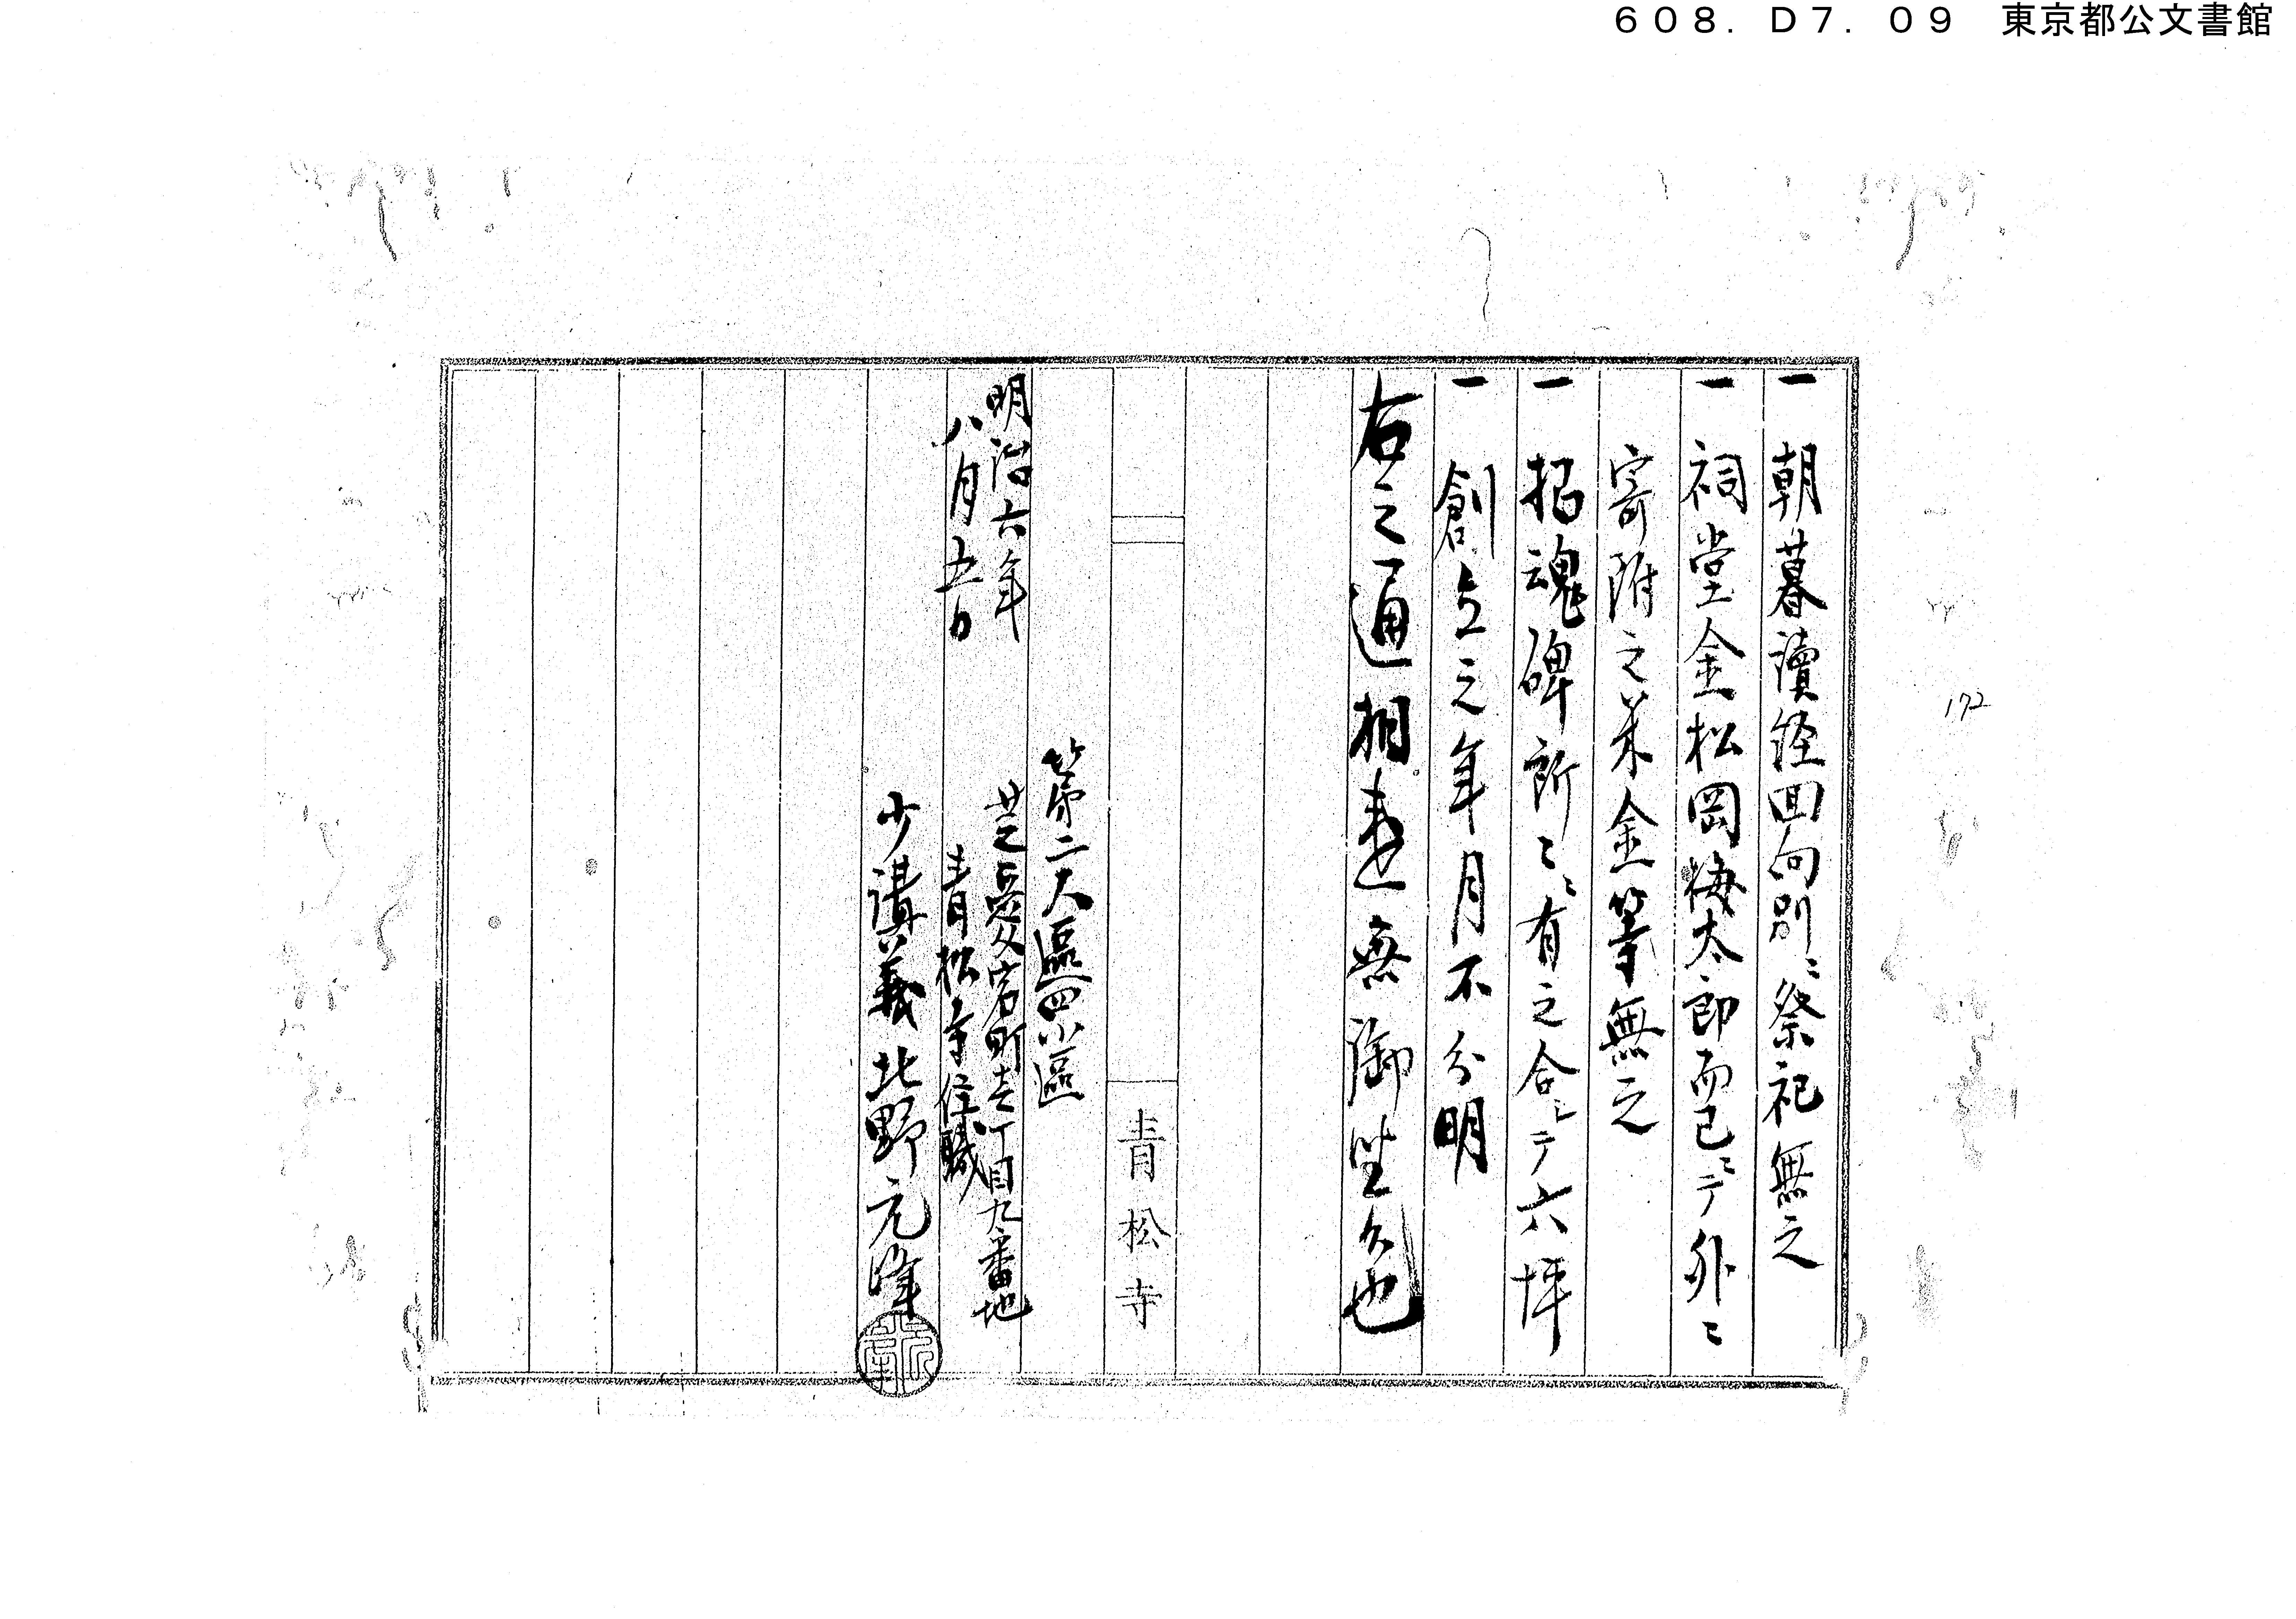 608.D7.09 東京都公文書館
一 朝暮讀経回向別ニ祭祀無之
一 祠堂金松岡梅太郎而已ニテ外ニ
寄附之米金等無之
一 招魂碑所ニ有之合シテ六坪
一 創立之年月不分明
右之通相違無御坐候也
青松寺
第二大區四小區
明治六年 芝愛宕町壱丁目九番地
八月五日 青松寺住職
少講義 北野元峰
172